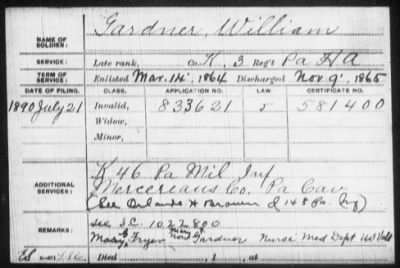 NAME OF SOLDIER: Gardner, William
SERVICE: Late rank, Co. K, 3 Reg't Pa H A
TERM OF SERVICE: Enlisted Mar. 14, 1864 Discharged Nov. 9, 1865
DATE OF FILING. CLASS. APPLICATION NO. LAW. CERTIFICATE NO.
1890 July 21 Invalid, 833621 581400
Widow,
Minor,
K 46 Pa Mil Inf
ADDITIONAL SERVICES: Mercereaus Co. Pa Cav
(See Orlando H Brown 148 Pa. Inf)
REMARKS: see I.C. 1022800
Mary Fryer now Gardner Nurse Med Dept US Vols
Died , 1 , at